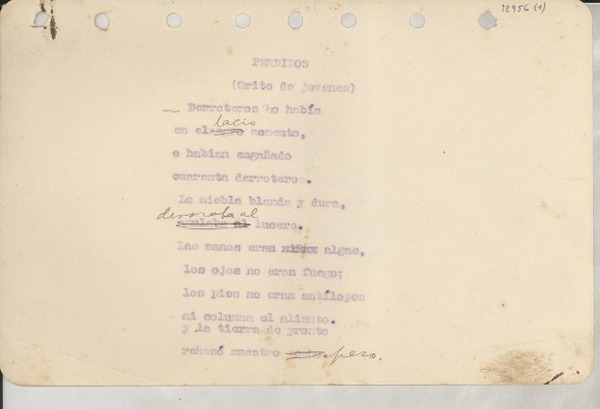 12956 (1)
PERDIDOS
(Grito de jovenes)
Derroteros no había
en el lacio momento,
o habían engañado
cuarenta derroteros.
La niebla blanda y dura,
al lucero.
Las manos eran algas,
los ojos no eran fuego;
los pies no eran antílopes
ni columna el aliento.
y la tierra de pronto
rehusó nuestro peso.